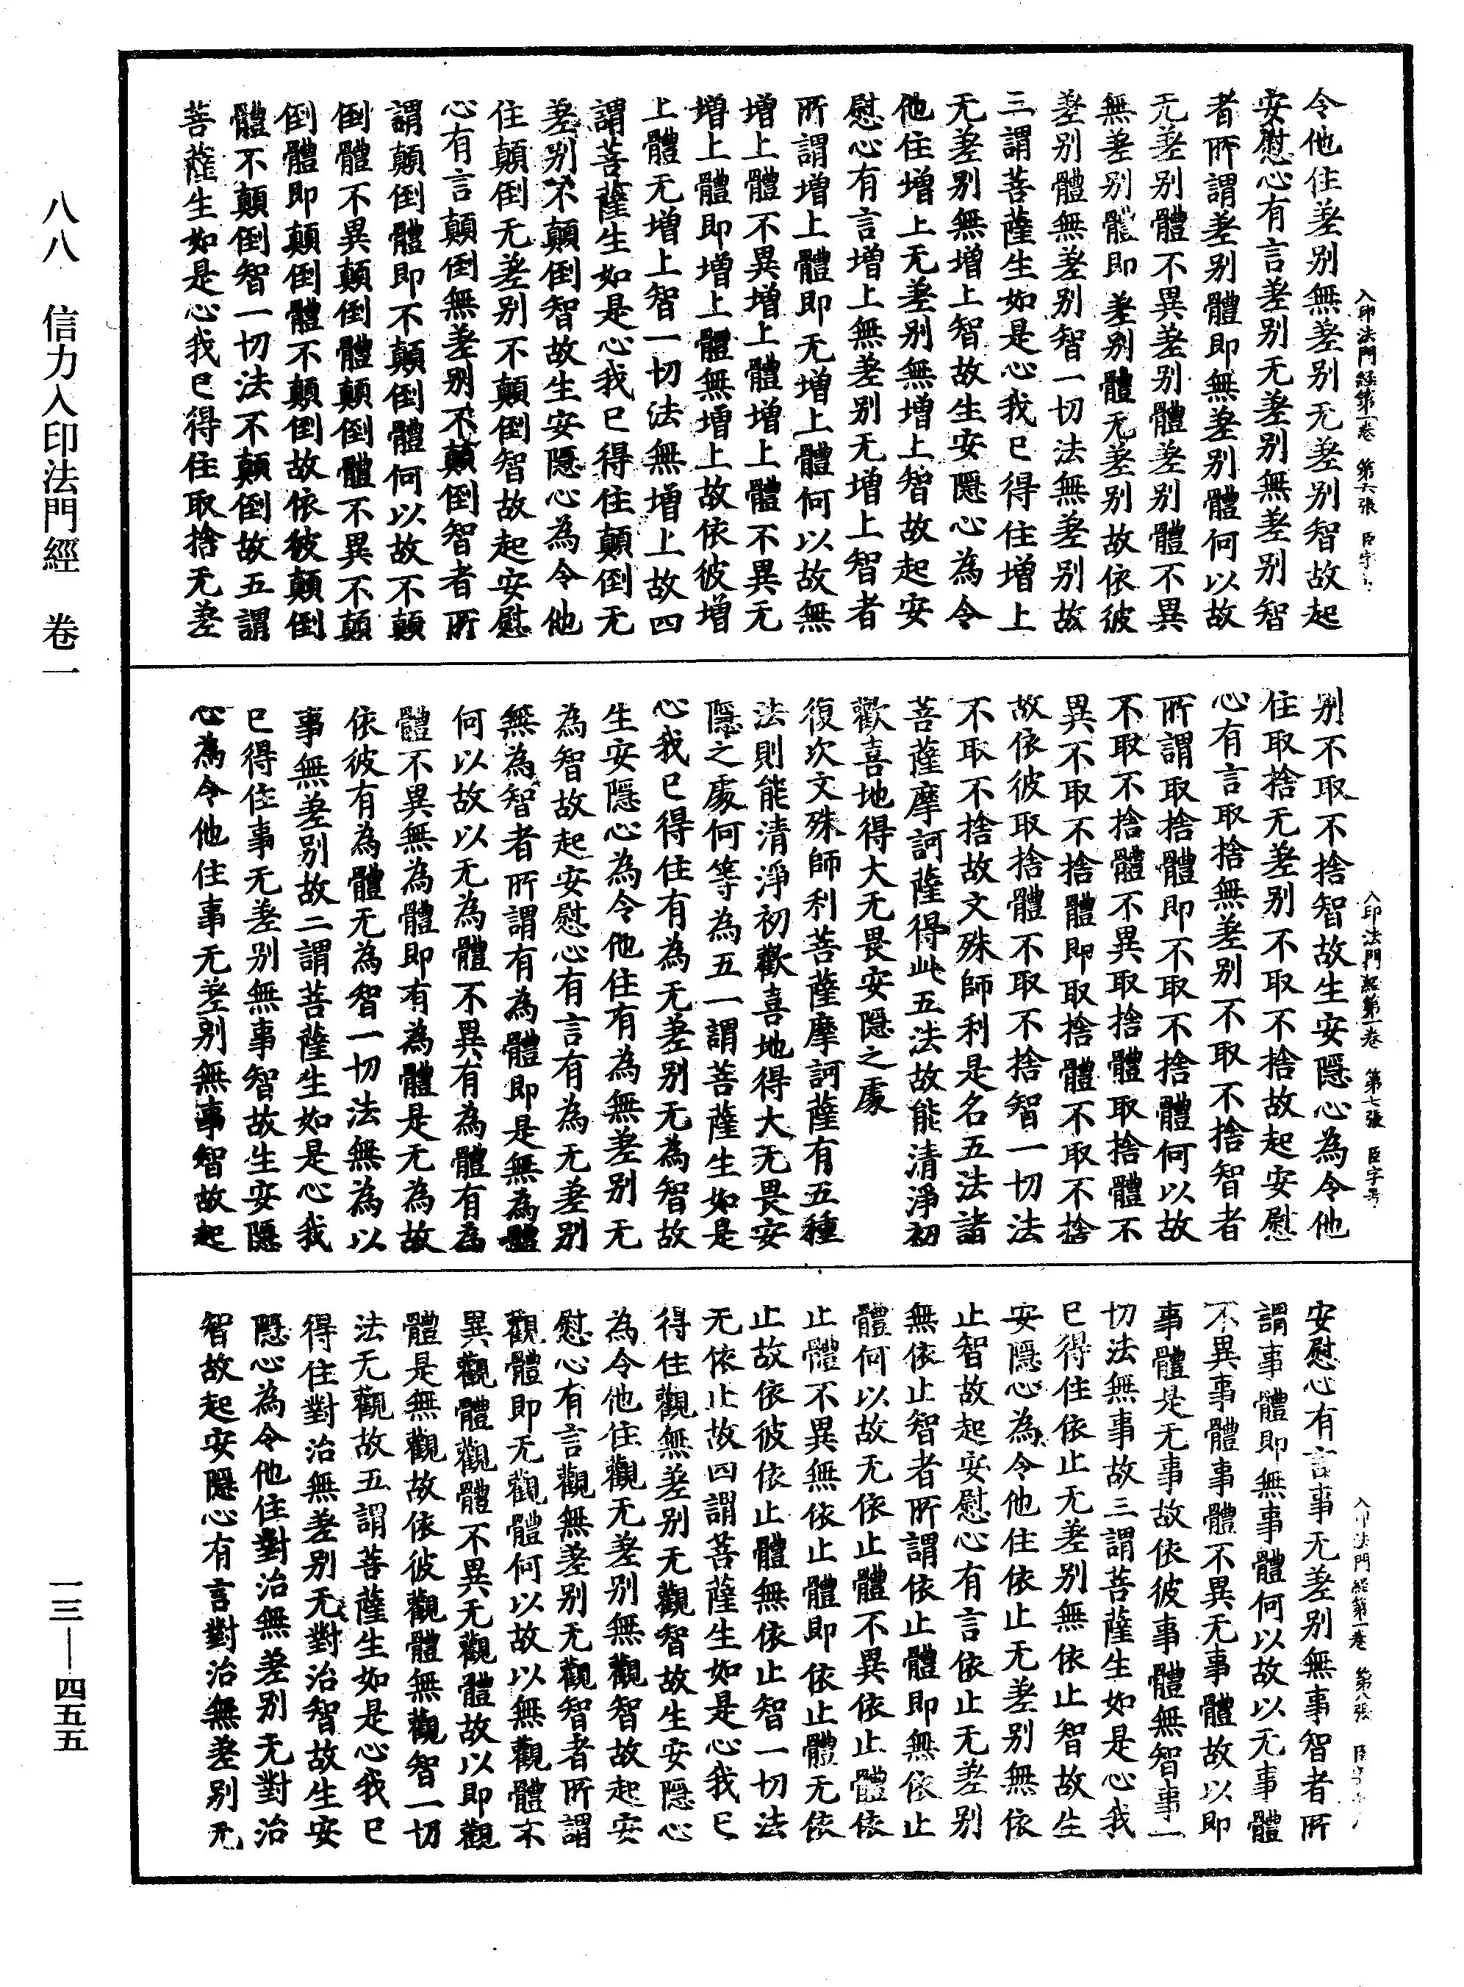 入印法門經第一卷 第六張 臣字号
令他住差别無差别无差别智故起
安慰心有言差别无差别無差别智
者所謂差别體即無差别體何以故
无差别體不異差别體差别體不異
無差别體即差别體无差别故依彼
差别體無差别智一切法無差别故
三謂菩薩生如是心我已得住增上
无差别無增上智故生安隱心為令
他住增上无差别無增上智故起安
慰心有言增上無差别无增上智者
所謂增上體即无增上體何以故無
增上體不異增上體增上體不異无
增上體即增上體無增上故依彼增
上體无增上智一切法無增上故四
謂菩薩生如是心我已得住顛倒无
差别不顛倒智故生安隱心為令他
住顛倒无差别不顛倒智故起安慰
心有言顛倒無差别不顛倒智者所
謂顛倒體即不顛倒體何以故不顛
倒體不異顛倒體顛倒體不異不顛
倒體即顛倒體不顛倒故依彼顛倒
體不顛倒智一切法不顛倒故五謂
菩薩生如是心我已得住取捨无差
入印法門經第一卷 第七張 臣字号
别不取不捨智故生安隱心為令他
住取捨无差别不取不捨故起安慰
心有言取捨無差别不取不捨智者
所謂取捨體即不取不捨體何以故
不取不捨體不異取捨體取捨體不
異不取不捨體即取捨體不取不捨
故依彼取捨體不取不捨智一切法
不取不捨故文殊師利是名五法諸
菩薩摩訶薩得此五法故能清淨初
歡喜地得大无畏安隱之處
復次文殊師利菩薩摩訶薩有五種
法則能清淨初歡喜地得大无畏安
隱之處何等為五一謂菩薩生如是
心我已得住有為无差别无為智故
生安隱心為令他住有為無差别无
為智故起安慰心有言有為无差别
無為智者所謂有為體即是無為體
何以故以无為體不異有為體有為
體不異無為體即有為體是无為故
依彼有為體无為智一切法無為以
事無差别故二謂菩薩生如是心我
已得住事无差别無事智故生安隱
心為令他住事无差别無事智故起
入印法門經第一卷 第八張 臣字号
安慰心有言事无差别無事智者所
謂事體即無事體何以故以无事體
不異事體事體不異无事體故以即
事體是无事故依彼事體無智事一
切法無事故三謂菩薩生如是心我
已得住依止无差别無依止智故生
安隱心為令他住依止无差别無依
止智故起安慰心有言依止无差别
無依止智者所謂依止體即無依止
體何以故无依止體不異依止體依
止體不異無依止體即依止體无依
止故依彼依止體無依止智一切法
无依止故四謂菩薩生如是心我已
得住觀無差别无觀智故生安隱心
為令他住觀无差别無觀智故起安
慰心有言觀無差别无觀智者所謂
觀體即无觀體何以故以無觀體不
異觀體觀體不異无觀體故以即觀
體是無觀故依彼觀體無觀智一切
法无觀故五謂菩薩生如是心我已
得住對治無差别无對治智故生安
隱心為令他住對治無差别无對治
智故起安隱心有言對治無差别无
八八 信力入印法門經 卷一
一三—四五五